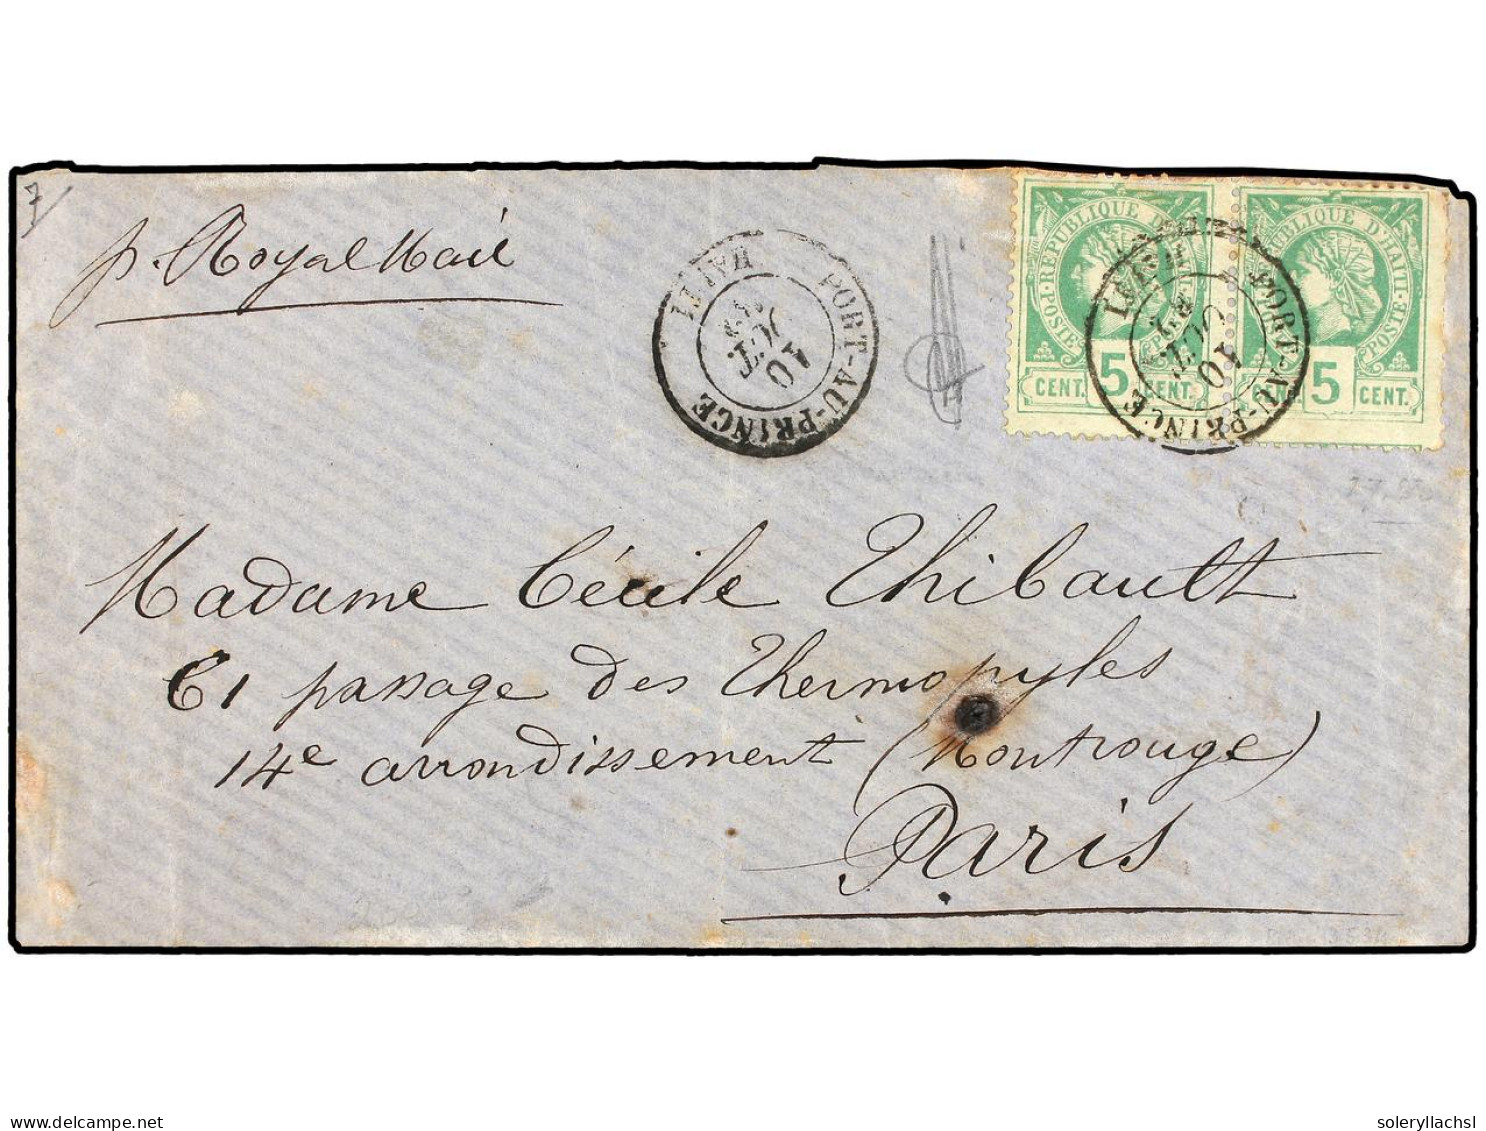 7
p. Royal Mail
HAITI PORT-AU-PRINCE
10 OCT
RÉPUBLIQUE D'HAITI
POSTES
5
CENT. CENT.
RÉPUBLIQUE D'HAITI
POSTES
5
CENT. CENT.
HAITI PORT-AU-PRINCE
10 OCT
Madame Cécile Thibault
61 passage des Thermopyles
14e arrondissement (Montrouge)
Paris
delcampe.net
soleryllachsl